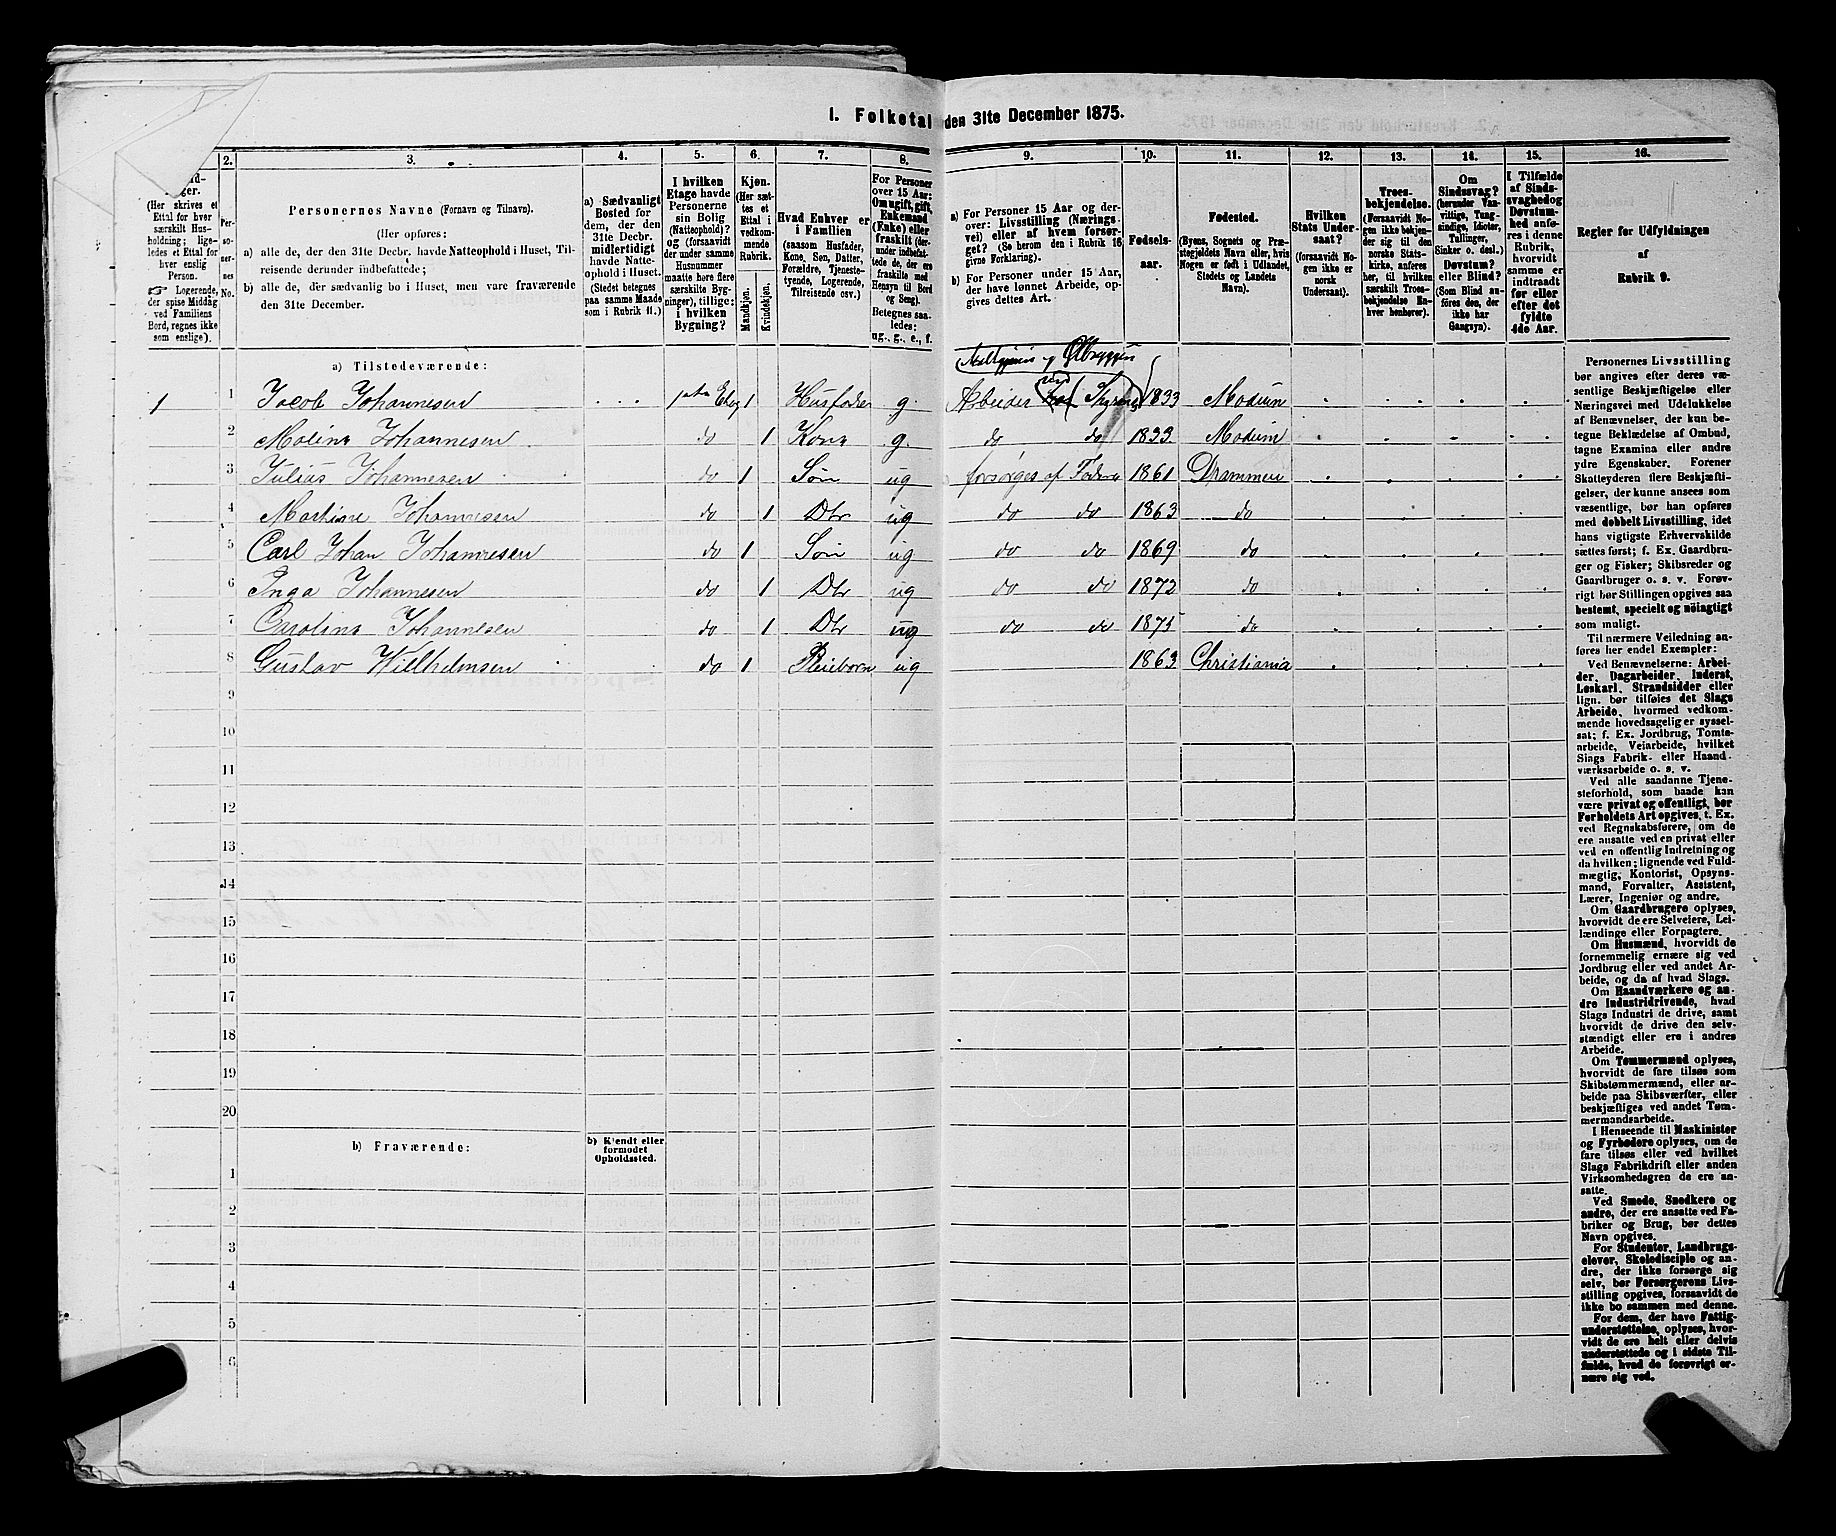 1. Folketal den 31te December 1875.
2. 3. 4. 5. 6. 7. 8. 9. 10. 11. 12. 13. 14. 15. 16.
(Her skrives et
Ettal for hver
særskilt Hus-
holdning; lige-
ledes et Ettal for
hver enslig
Person.
☞ Logerende,
der spise Middag
ved Familiens
Bord, regnes ikke
som enslige).
Per-
so-
ner-
nes
No.
Personernes Navne (Fornavn og Tilnavn).
(Her opføres:
a) alle de, der den 31te Decbr. havde Natteophold i Huset, Til-
reisende derunder indbefattede;
b) alle de, der sædvanlig bo i Huset, men vare fraværende
den 31te December.
a) Sædvanligt
Bosted for
dem, der den
31te Decbr.
midlertidigt
havde Natte-
ophold i Huset.
(Stedet betegnes
paa samme Maade
som i Rubrik 11.)
I hvilken
Etage havde
Personerne
sin Bolig
(Natteophold)?
og (forsaavidt
der under samme
Husnummer
maatte høre flere
særskilte Byg-
ninger), tillige:
i hvilken
Bygning?
Kjøn.
(Her sæt-
tes et
Ettal i
vedkom-
mende
Rubrik.
Mandkjøn.
Kvindekjøn.
Hvad Enhver er
i Familien
(saasom Husfader,
Kone, Søn, Datter,
Forældre, Tjeneste-
tyende, Logerende,
Tilreisende osv.)
For Personer
over 15 Aar:
Om ugift, gift,
Enkemand
(Enke) eller
fraskilt (der-
under indbefat-
tede de, der ere
fraskilte med
Hensyn til Bord
og Seng).
Betegnes saa-
ledes:
ug., g., e., f.
a) For Personer 15 Aar og der-
over: Livsstilling (Nærings-
vei) eller af hvem forsør-
get? (Se herom den i Rubrik 16
givne Forklaring).
b) For Personer under 15 Aar,
der have lønnet Arbeide, op-
gives dettes Art.
Fødsels-
aar.
Fødested.
(Byens, Sognets og Præ-
stegjeldets Navn eller, hvis
Nogen er født i Udlandet,
Stedets og Landets
Navn).
Hvilken
Stats Under-
saat?
(forsaavidt No-
gen ikke er
norsk
Undersaat).
Troes-
bekjendelse.
(Forsaavidt No-
gen ikke bekjen-
der sig til den
norske Stats-
kirke, anføres
her, til hvilken
særskilt Troes-
bekjendelse En-
hver henhører).
Om
Sindssvag?
(herunder Van-
vittige, Tung-
sindige, Idioter,
Tullinger,
Sinker o. desl.)
Døvstum?
eller Blind?
(Som Blind an-
føres den, der
ikke har
Gangsyn).
I Tilfælde
af Sinds-
svaghed og
Døvstum-
hed anfø-
res i denne
Rubrik,
hvorvidt
samme er
indtraadt
før eller
efter det
fyldte
4de Aar.
Regler for Udfyldningen
af
Rubrik 9.
a) Tilstedeværende:
Ølbryggeri
1 1 Jacob Johannesen 1 Husfader g. Arbeider 1833 Modum
2 Maline Johannesen do 1 Kone g. do do 1833 Modum
3 Julius Johannesen do 1 Søn ug forsørges af Fader 1861 Drammen
4 Martine Johannesen do 1 Dtr ug do do 1863 do
5 Carl Johan Johannesen do 1 Søn ug do do 1869 do
6 Inga Johannesen do 1 Dtr ug do do 1872 do
7 Caroline Johannesen do 1 Dtr ug do do 1875 do
8 Gustav Wilhelmsen do 1 Pleiebarn ug 1863 Christiania
9
10
11
12
13
14
15
16
17
18
19
20
b) Fraværende:
b) Kjendt eller
formodet
Opholdssted.
1
2
3
4
5
6
Personernes Livsstilling
bør angives efter deres væ-
sentlige Beskjæftigelse eller
Næringsvei med Udelukkelse
af Benævnelser, der kun be-
tegne Beklædelse af Ombud,
tagne Examina eller andre
ydre Egenskaber. Forener
Skatteyderen flere Beskjæfti-
gelser, der kunne ansees som
væsentlige, bør han opføres
med dobbelt Livsstilling, idet
hans vigtigste Erhvervskilde
sættes først; f. Ex. Gaardbru-
ger og Fisker; Skibsreder og
Gaardbruger o. s. v. Forøv-
rigt bør Stillingen opgives saa
bestemt, specielt og nøiagtigt
som muligt.
Til nærmere Veiledning an-
føres her endel Exempler:
Ved Benævnelserne: Arbei-
der, Dagarbeider, Inderst,
Løskarl, Strandsidder eller
lign. bør tilføies det Slags
Arbeide, hvormed vedkom-
mende hovedsagelig er syssel-
sat; f. Ex. Jordbrug, Tomte-
arbeide, Veiarbeide, hvilket
Slags Fabrik- eller Haand-
værksarbeide o. s. v.
Ved alle saadanne Tjene-
steforhold, som baade kan
være privat og offentligt, bør
Forholdets Art opgives, t. Ex.
ved Regnskabsførere, om de
ere ansatte ved en privat eller
ved en offentlig Indretning og
da hvilken; lignende ved Fuld-
mægtig, Kontorist, Opsyns-
mand, Forvalter, Assistent,
Lærer, Ingeniør og andre.
Om Gaardbrugere oplyses,
hvorvidt de ere Selveiere, Lei-
lændinge eller Forpagtere.
Om Husmænd, hvorvidt de
fornemmelig ernære sig ved
Jordbrug eller ved andet Ar-
beide, og da af hvad Slags.
Om Haandværkere og an-
dre Industridrivende, hvad
Slags Industri de drive, samt
hvorvidt de drive den selv-
stændigt eller ere i andres
Arbeide.
Om Tømmermænd oplyses,
hvorvidt de fare tilsøs som
Skibstømmermænd, eller ar-
beide paa Skibsværfter, eller
beskjæftiges ved andet Tøm-
mermandsarbeide.
I Henseende til Maskinister
og Fyrbødere oplyses, om de
fare tilsøs eller ved hvilket
Slags Fabrikdrift eller anden
Virksomhedsgren de ere an-
satte.
Ved Smede, Snedkere og
andre, der ere ansatte ved Fa-
briker og Brug, bør dettes
Navn opgives.
For Studenter, Landbrugs-
elever, Skoledisciple og an-
dre, der ikke forsørge sig
selv, bør Forsørgerens Livs-
stilling opgives, forsaavidt de
ikke bo sammen med denne.
For dem, der have Fattig-
understøttelse, oplyses, hvor-
vidt de ere helt eller delvis
understøttede og i sidste Til-
fælde, hvad de forøvrigt er-
nære sig ved.